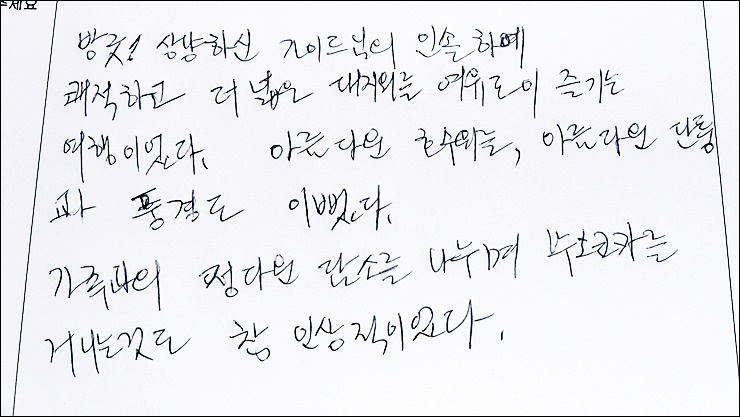 주세요
방긋! 상냥하신 가이드님의 인솔하에
쾌적하고 더 넓은 대지의를 여유로이 즐기는
여행이었다. 아름다운 호수와들, 아름다운 단풍
과 풍경도 이뻤다.
가족과의 정다운 담소를 나누며 부차드가든을
거니는것도 참 인상적이었다.